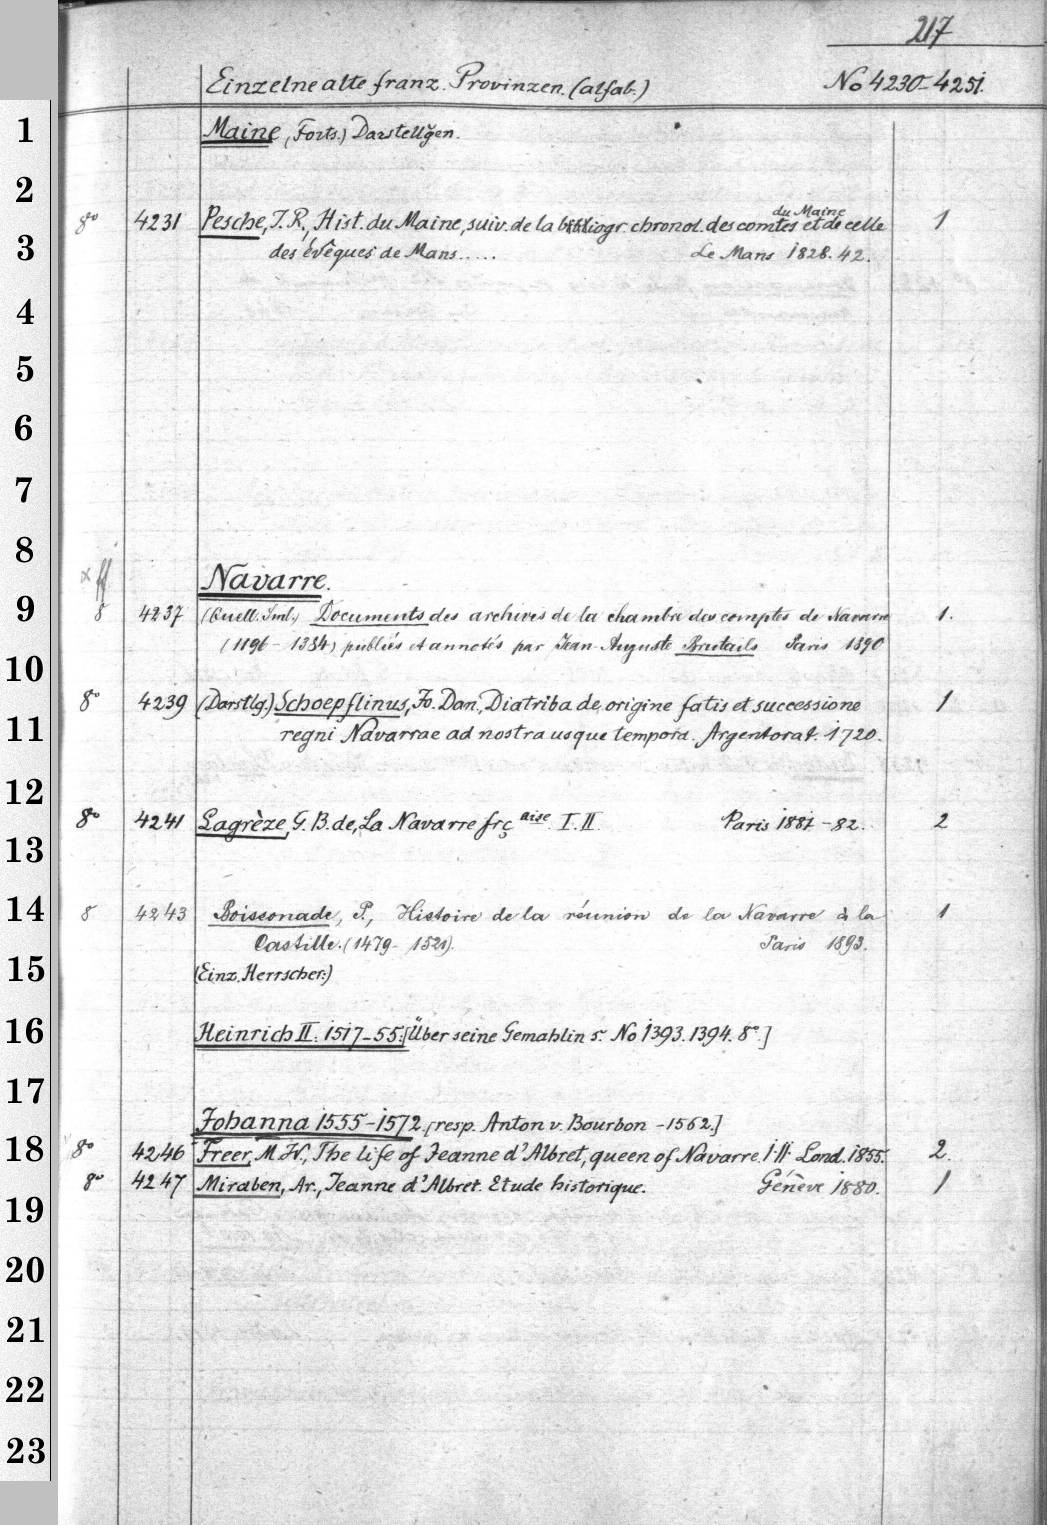 217
Einzelne alte franz. Provinzen. (alfab.) No 4230-4251.
1
Maine, (Forts.) Darstellg̃en.
2
8º 4231 Pesche, J. R., Hist. du Maine, suiv. de la bibliogr. chronol. des comtes du Maine et de celle 1
3
des évêques de Mans..... Le Mans 1828. 42.
4
5
6
7
8
Navarre.
9
8 4237 (Quell. Sml.) Documents des archives de la chambre des comptes de Navarre 1.
(1196-1384) publiés et annotés par Jean-Auguste Brutails Paris 1890
10
8º 4239 (Darstlg.) Schoepflinus, Jo. Dan., Diatriba de origine fatis et successione 1
11
regni Navarrae ad nostra usque tempora. Argentorat. 1720.
12
8º 4241 Lagrèze, G. B. de, La Navarre frçaise. I. II. Paris 1881-82. 2
13
14
8 4243 Boissonade, P., Histoire de la réunion de la Navarre à la 1
Castille. (1479-1521). Paris 1893.
15
(Einz. Herrscher:)
16
Heinrich II. 1517-55: [Über seine Gemahlin s. No 1393. 1394. 8º.]
17
Johanna 1555-1572. [resp. Anton v. Bourbon -1562.]
18
8º 4246 Freer, M. W., The life of Jeanne d'Albret, queen of Navarre. I. II. Lond. 1855. 2.
8º 4247 Miraben, Ar., Jeanne d'Albret. Etude historique. Génève 1880. 1
19
20
21
22
23